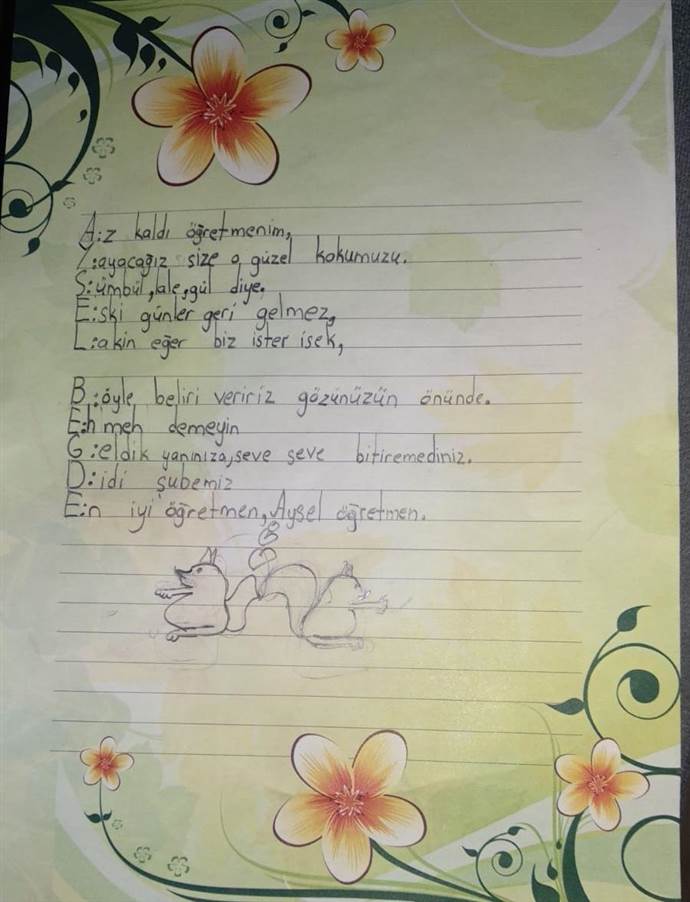 A:z kaldı öğretmenim,
Y:ayacağız size o güzel kokumuzu.
S:ümbül, lale, gül diye.
E:ski günler geri gelmez,
L:akin eğer biz ister isek,
B:öyle beliri veririz gözünüzün önünde.
E:h meh demeyin
G:eldik yanınıza, seve seve bitiremediniz.
D:idi şubemiz
E:n iyi öğretmen, Aysel öğretmen.